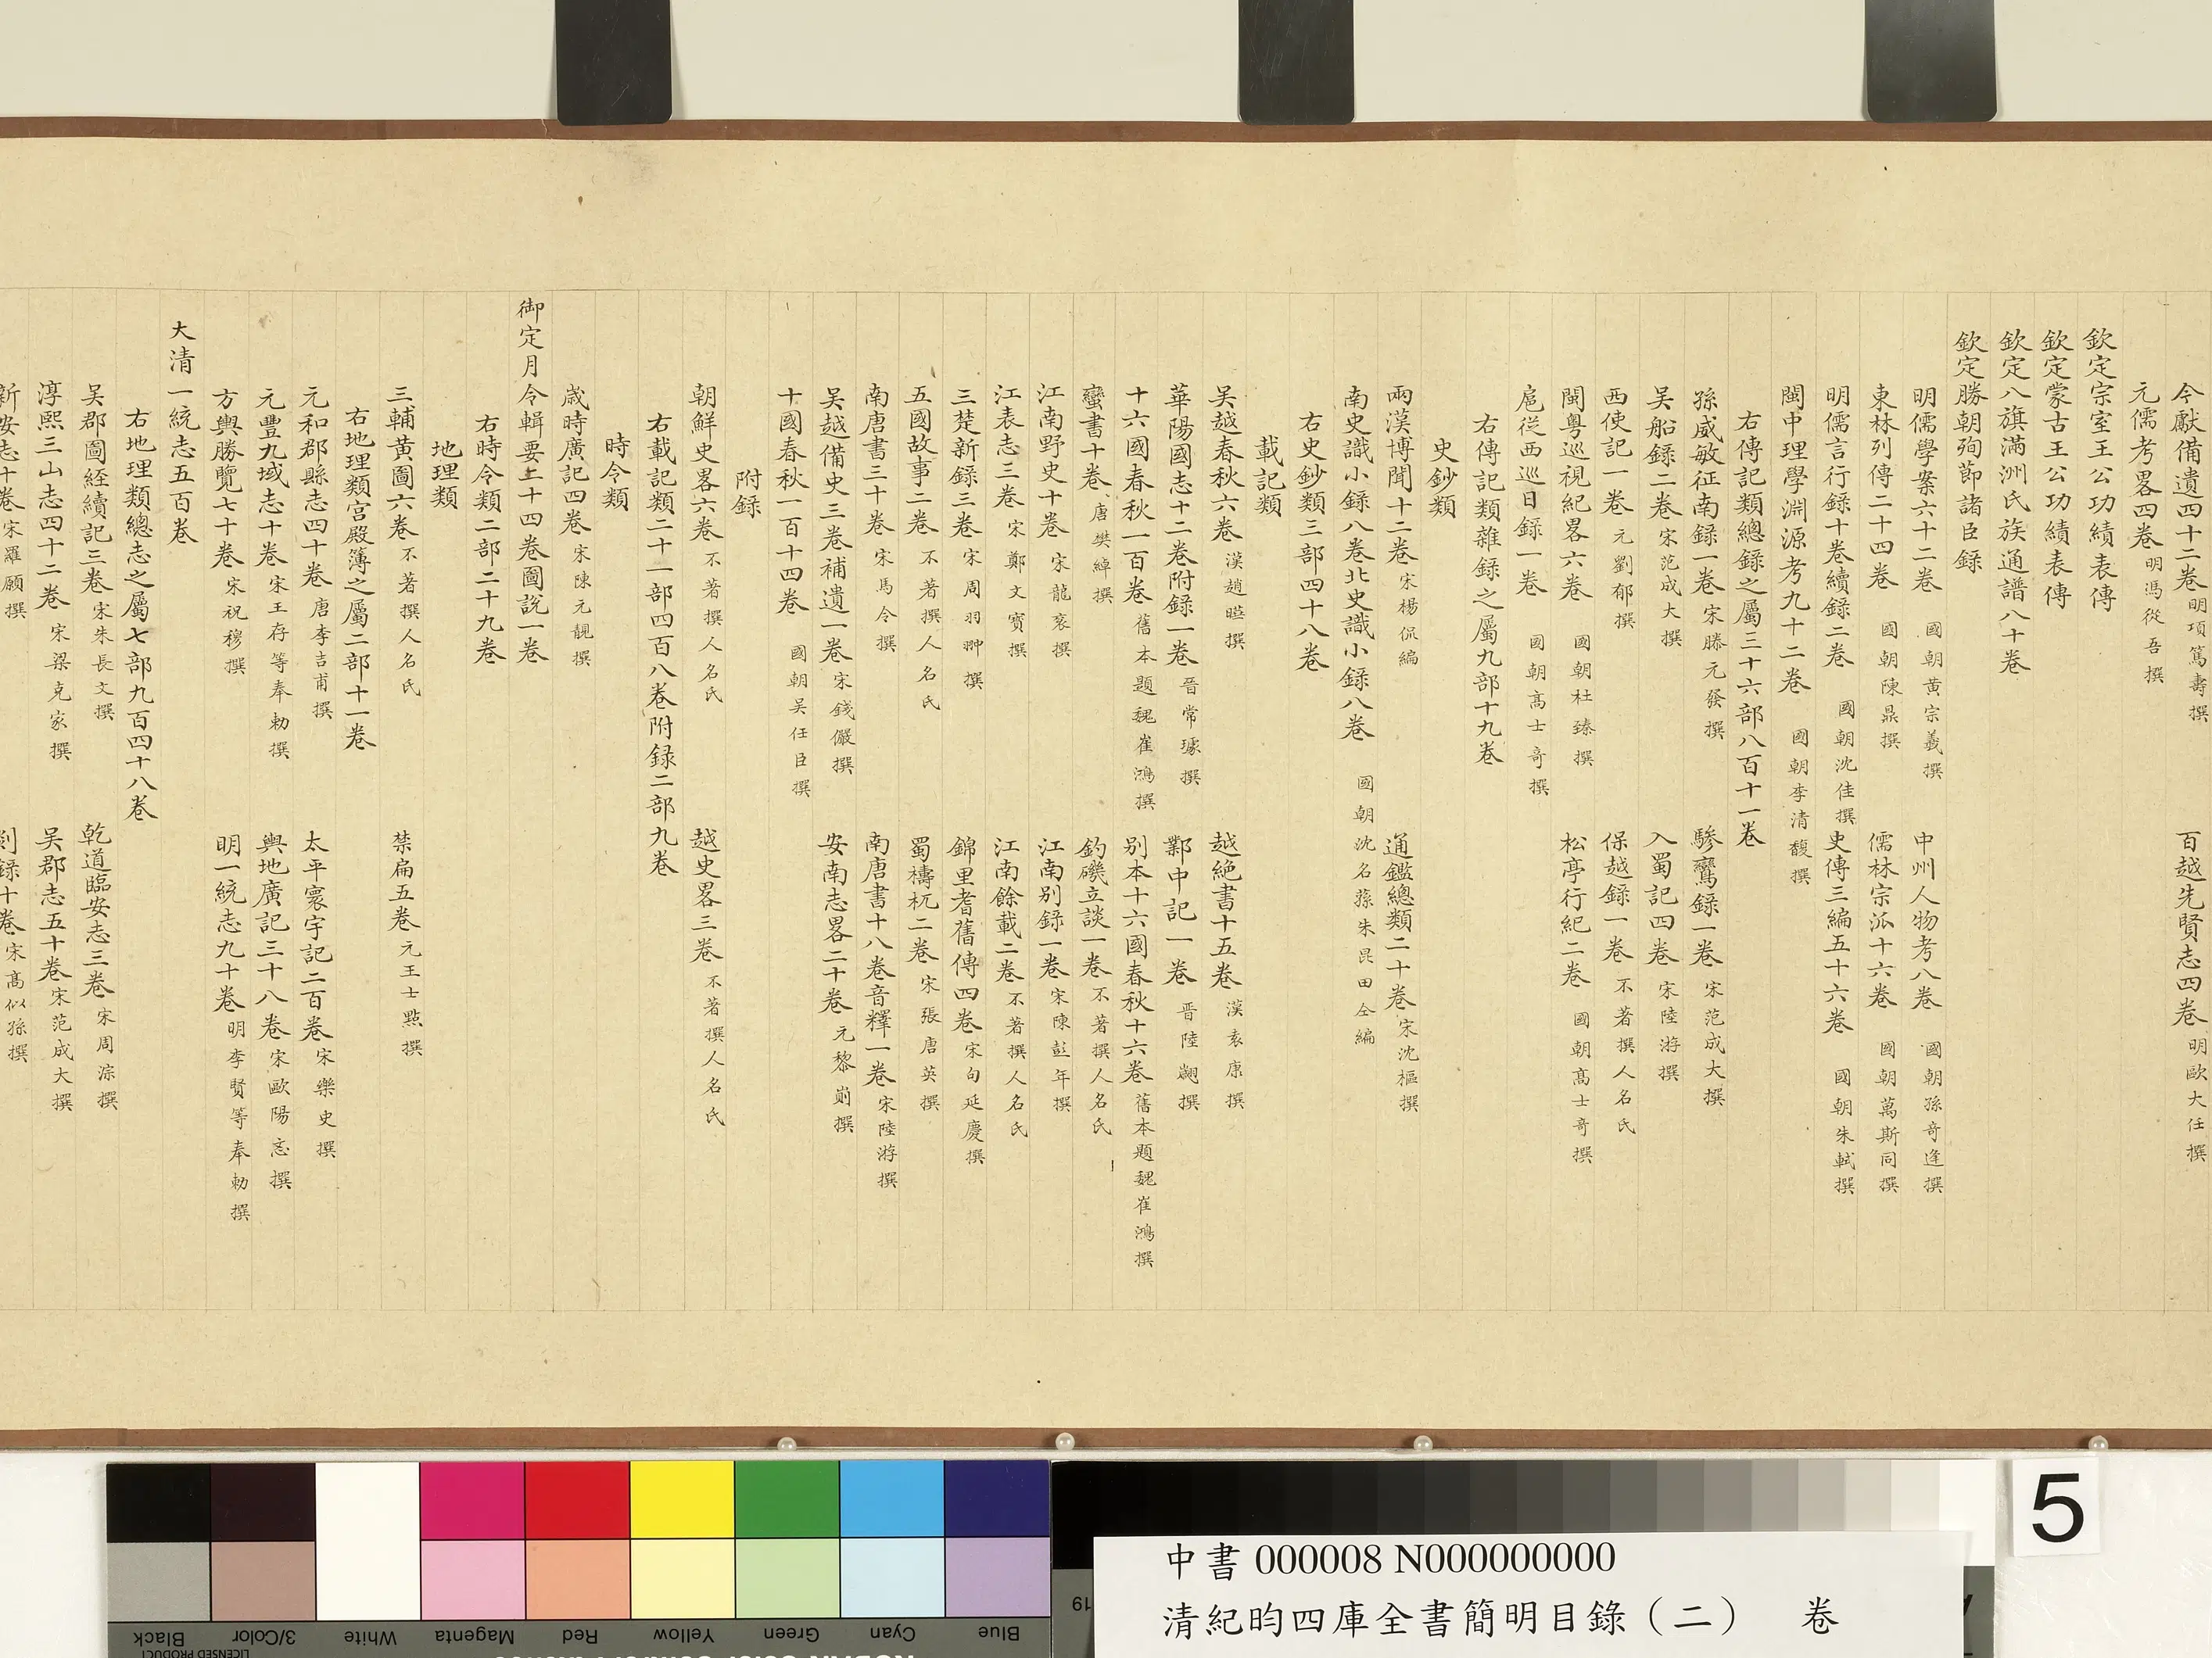 今獻備遺四十二卷 明項篤壽撰 百越先賢志四卷 明歐大任撰
元儒考畧四卷 明馮從吾撰
欽定宗室王公功績表傳
欽定蒙古王公功績表傳
欽定八旗滿洲氏族通譜八十卷
欽定勝朝殉節諸臣錄
明儒學案六十二卷 國朝黃宗羲撰 中州人物考八卷 國朝孫奇逢撰
東林列傳二十四卷 國朝陳鼎撰 儒林宗派十六卷 國朝萬斯同撰
明儒言行録十卷續録二卷 國朝沈佳撰 史傳三編五十六卷 國朝朱軾撰
閩中理學淵源考九十二卷 國朝李清馥撰
右傳記類總録之屬三十六部八百十一卷
孫威敏征南録一卷 宋滕元發撰 驂鸞録一卷 宋范成大撰
吴船録二卷 宋范成大撰 入蜀記四卷 宋陸游撰
西使記一卷 元劉郁撰 保越録一卷 不著撰人名氏
閩粤巡視紀畧六卷 國朝杜臻撰 松亭行紀二卷 國朝髙士奇撰
扈從西巡日録一卷 國朝髙士奇撰
右傳記類雜録之屬九部十九卷
史鈔類
兩漢博聞十二卷 宋楊侃編 通鑑總類二十卷 宋沈樞撰
南史識小録八卷北史識小録八卷 國朝沈名蓀朱昆田仝編
右史鈔類三部四十八卷
載記類
吴越春秋六卷 漢趙曄撰 越絶書十五卷 漢袁康撰
華陽國志十二卷附録一卷 晉常璩撰 鄴中記一卷 晉陸翽撰
十六國春秋一百卷 舊本題魏崔鴻撰 别本十六國春秋十六卷 舊本題魏崔鴻撰
蠻書十卷 唐樊綽撰 釣磯立談一卷 不著撰人名氏
江南野史十卷 宋龍衮撰 江南别録一卷 宋陳彭年撰
江表志三卷 宋鄭文寶撰 江南餘載二卷 不著撰人名氏
三楚新録三卷 宋周羽翀撰 錦里耆舊傳四卷 宋句延慶撰
五國故事二卷 不著撰人名氏 蜀檮杌二卷 宋張唐英撰
南唐書三十卷 宋馬令撰 南唐書十八卷音釋一卷 宋陸游撰
吴越備史三卷補遺一卷 宋錢儼撰 安南志畧二十卷 元黎崱撰
十國春秋一百十四卷 國朝吴任臣撰
附録
朝鮮史畧六卷 不著撰人名氏 越史畧三卷 不著撰人名氏
右載記類二十一部四百八卷附録二部九卷
時令類
歳時廣記四卷 宋陳元靚撰
御定月令輯要二十四卷圖說一卷
右時令類二部二十九卷
地理類
三輔黃圖六卷 不著撰人名氏 禁扁五卷 元王士點撰
右地理類宫殿簿之屬二部十一卷
元和郡縣志四十卷 唐李吉甫撰 太平寰宇記二百卷 宋樂史撰
元豐九域志十卷 宋王存等奉勅撰 輿地廣記三十八卷 宋歐陽忞撰
方輿勝覽七十卷 宋祝穆撰 明一統志九十卷 明李賢等奉勅撰
大清一統志五百卷
右地理類總志之屬七部九百四十八卷
吴郡圖經續記三卷 宋朱長文撰 乾道臨安志三卷 宋周淙撰
淳熙三山志四十二卷 宋梁克家撰 吴郡志五十卷 宋范成大撰
新安志十卷 宋羅願撰 剡録十卷 宋髙似孫撰
5
中書 000008 N000000000
清紀昀四庫全書簡明目錄（二） 卷
19
Black 3/Color White Magenta Red Yellow Green Cyan Blue
LICENSED PRODUCT